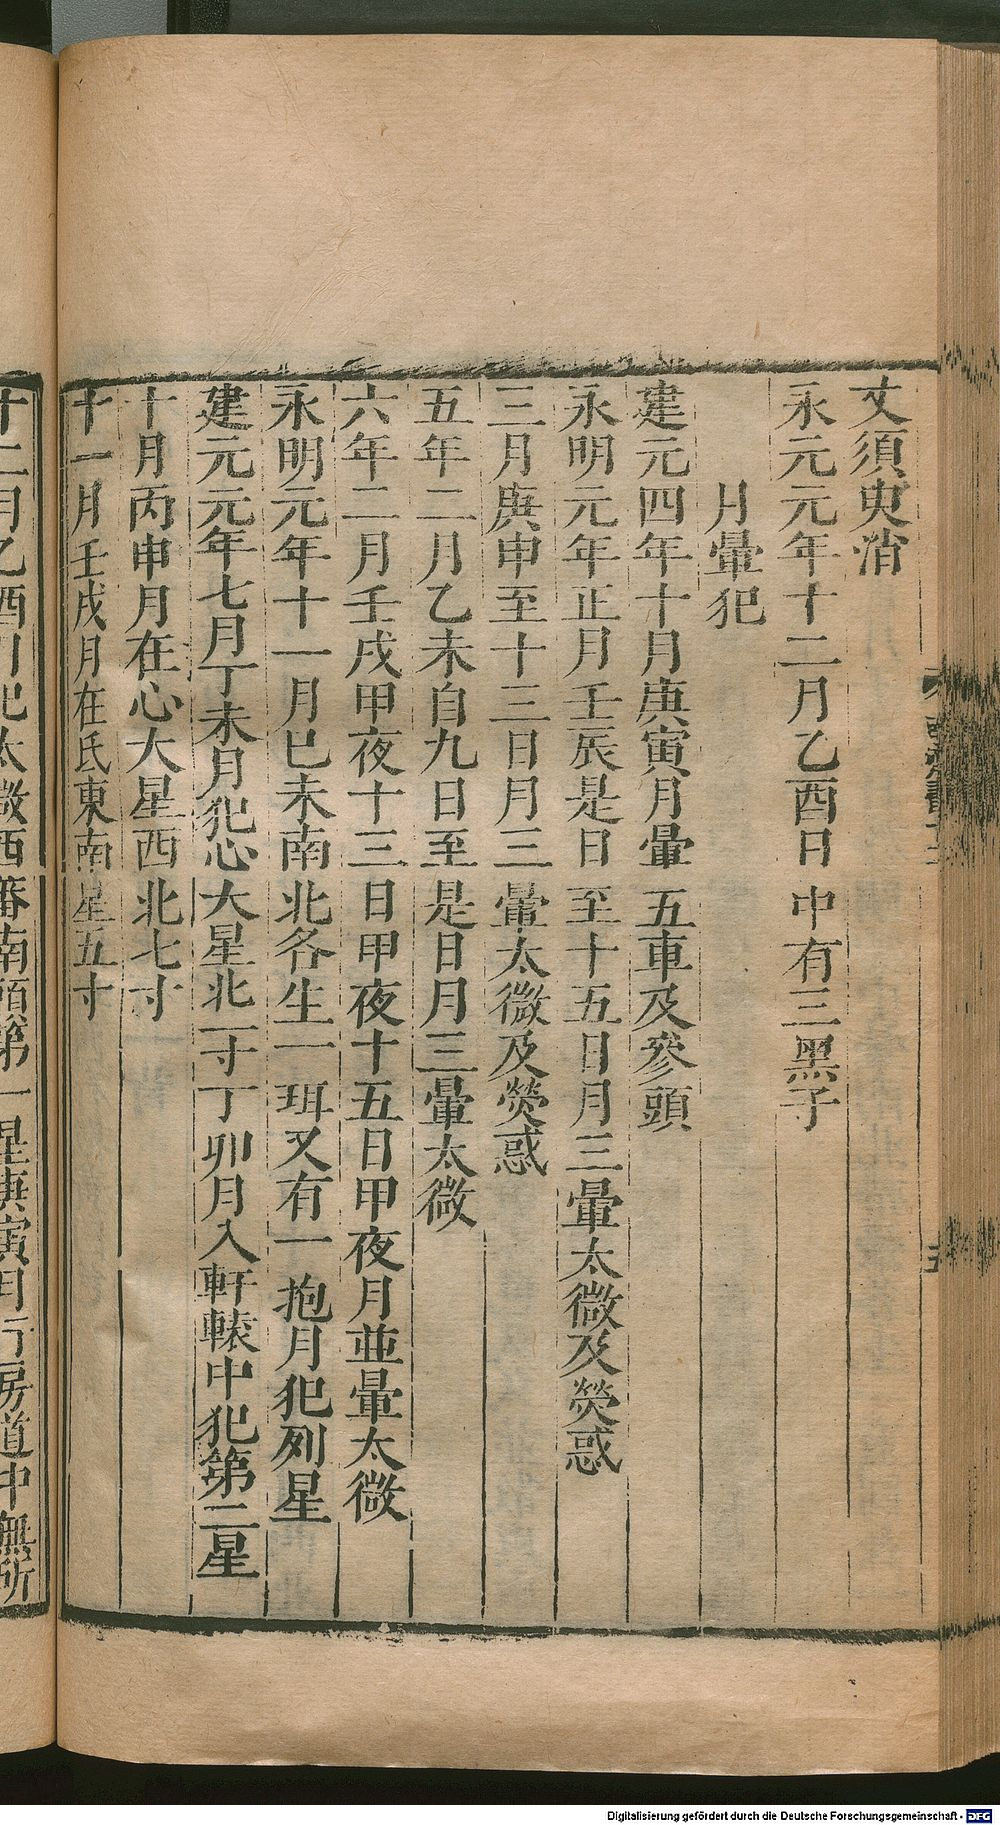 文須臾消
永元元年十二月乙酉日中有三黑子
月暈犯
建元四年十月庚寅月暈五車及參頭
永明元年正月壬辰是日至十五日月三暈太微及熒惑
三月庚申至十三日月三暈太微及熒惑
五年二月乙未自九日至是日月三暈太微
六年二月壬戌甲夜十三日甲夜十五日甲夜月並暈太微
永明元年十一月巳未南北各生一珥又有一抱月犯列星
建元元年七月丁未月犯心大星北一寸丁卯月入軒轅中犯第二星
十月丙申月在心大星西北七寸
十一月壬戌月在氐東南星五寸
十二月乙酉月犯太微西蕃南頭第一星庚寅月行房道中無所
Digitalisierung gefördert durch die Deutsche Forschungsgemeinschaft - DFG